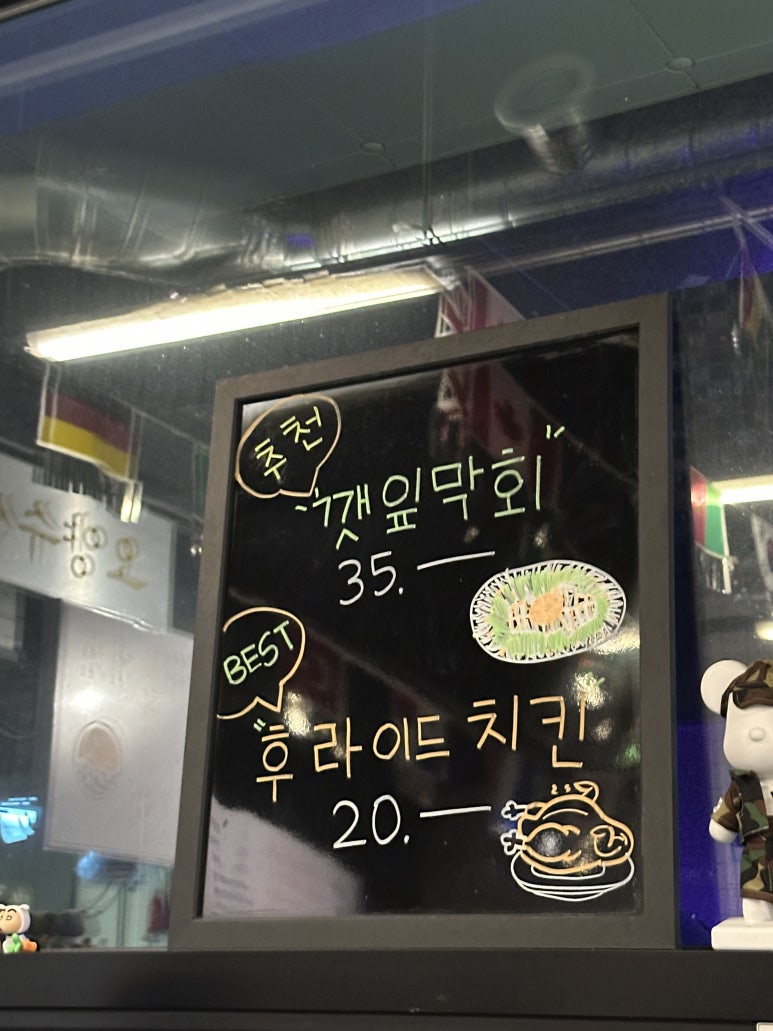 추천
"깻잎막회"
35.—
BEST
"후라이드 치킨"
20.—